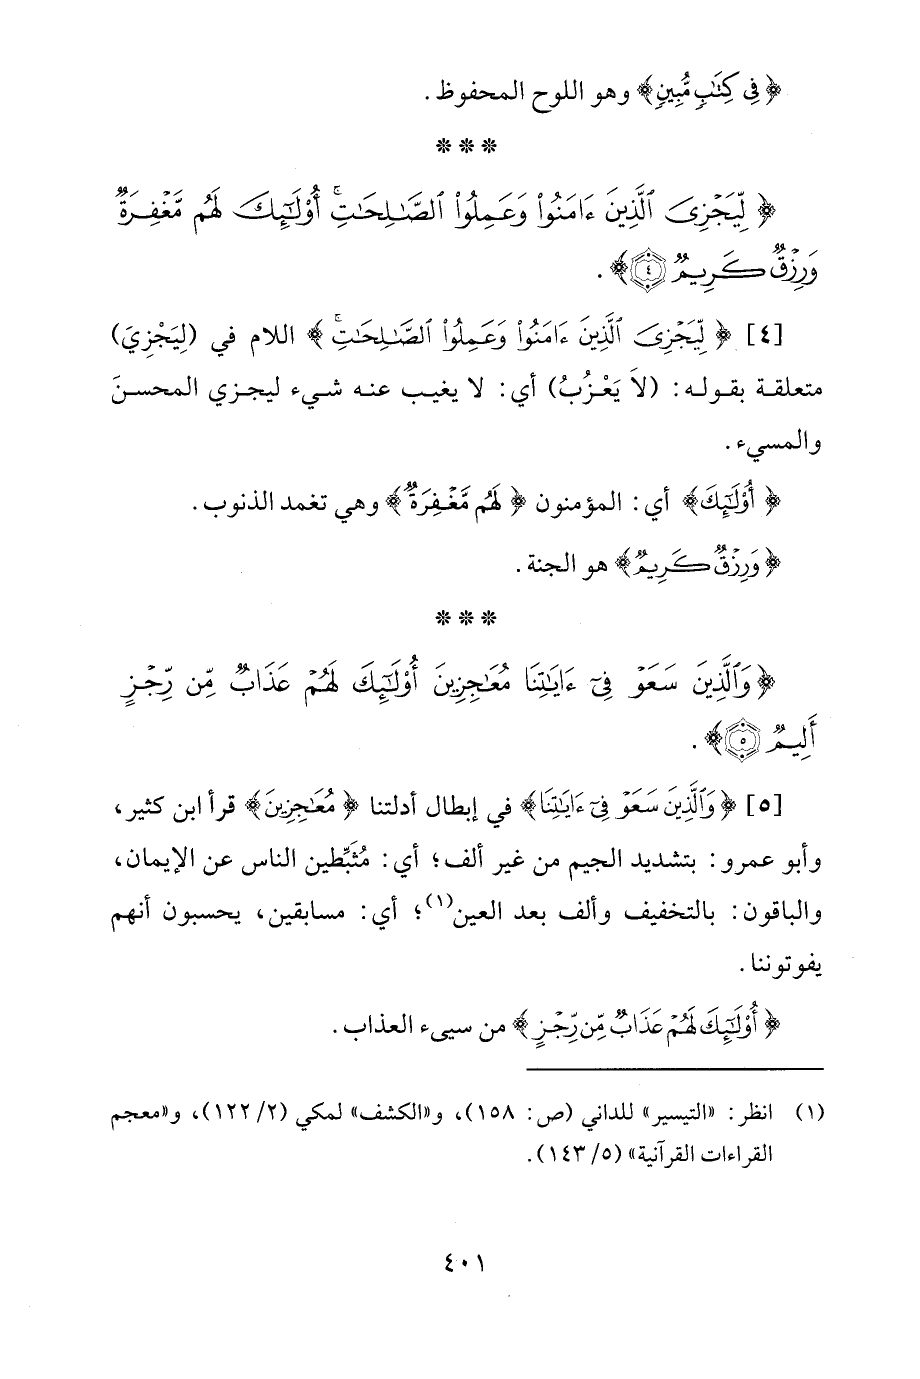 ﴿ فِى كِتَٰبٍ مُّبِينٍ ﴾ وهو اللوح المحفوظ .
* * *
﴿ لِّيَجْزِىَ ٱلَّذِينَ ءَامَنُوا۟ وَعَمِلُوا۟ ٱلصَّٰلِحَٰتِ ۚ أُو۟لَٰٓئِكَ لَهُم مَّغْفِرَةٌ
وَرِزْقٌ كَرِيمٌ ٤ ﴾ .
[٤] ﴿ لِّيَجْزِىَ ٱلَّذِينَ ءَامَنُوا۟ وَعَمِلُوا۟ ٱلصَّٰلِحَٰتِ ۚ ﴾ اللام في (لِيَجْزِيَ)
متعلقة بقوله: (لاَ يَعْزُبُ) أي: لا يغيب عنه شيء ليجزي المحسنَ
والمسيء .
﴿ أُو۟لَٰٓئِكَ ﴾ أي: المؤمنون ﴿ لَهُم مَّغْفِرَةٌ ﴾ وهي تغمد الذنوب .
﴿ وَرِزْقٌ كَرِيمٌ ﴾ هو الجنة .
* * *
﴿ وَٱلَّذِينَ سَعَوْ فِىٓ ءَايَٰتِنَا مُعَٰجِزِينَ أُو۟لَٰٓئِكَ لَهُمْ عَذَابٌ مِّن رِّجْزٍ
أَلِيمٌ ٥ ﴾ .
[٥] ﴿ وَٱلَّذِينَ سَعَوْ فِىٓ ءَايَٰتِنَا ﴾ في إبطال أدلتنا ﴿ مُعَٰجِزِينَ ﴾ قرأ ابن كثير،
وأبو عمرو: بتشديد الجيم من غير ألف؛ أي: مُثَبِّطين الناس عن الإيمان،
والباقون: بالتخفيف وألف بعد العين(١)؛ أي: مسابقين، يحسبون أنهم
يفوتوننا .
﴿ أُو۟لَٰٓئِكَ لَهُمْ عَذَابٌ مِّن رِّجْزٍ ﴾ من سيىء العذاب .
(١) انظر: «التيسير» للداني (ص: ١٥٨)، و«الكشف» لمكي (٢/ ١٢٢)، و«معجم
القراءات القرآنية» (٥/ ١٤٣).
٤٠١